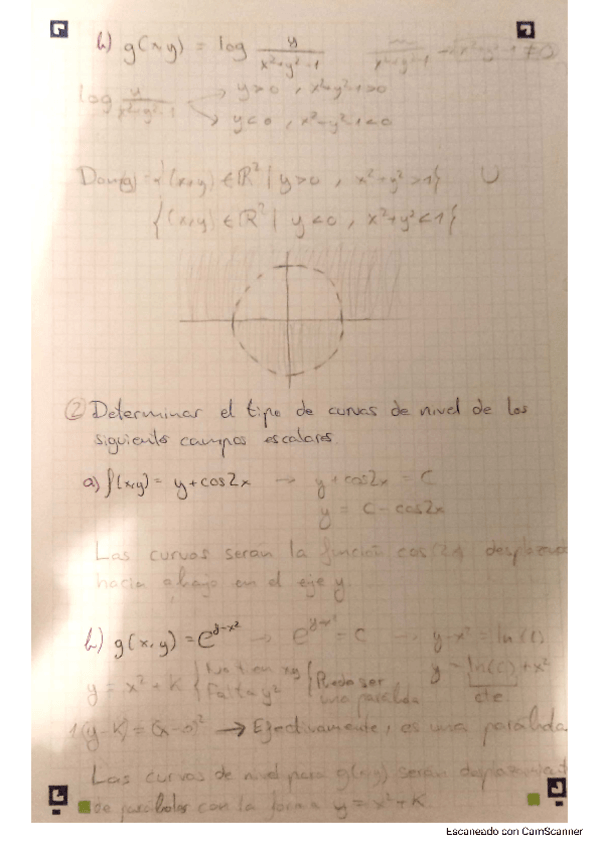 b) g(x,y) = log y/(x²+y²-1)
log y/(x²+y²-1) → y>0, x²+y²-1>0
→ y<0, x²+y²-1<0
Dom(g) = {(x,y) ∈ ℝ² | y>0, x²+y²>1} ∪
{(x,y) ∈ ℝ² | y<0, x²+y²<1}
② Determinar el tipo de curvas de nivel de los
siguientes campos escalares.
a) f(x,y) = y+cos2x → y+cos2x = C
y = C - cos2x
Las curvas serán la función cos(2x) desplazada
hacia abajo en el eje y.
b) g(x,y) = e^(y-x²) → e^(y-x²) = C → y-x² = ln(C)
y = x² + K { No tien xy Falta y² { Puede ser una parábola
y = ln(C) + x²
cte.
1(y-K) = (x-0)² → Efectivamente, es una parábola
Las curvas de nivel para g(x,y) serán desplazamient
de parábolas con la forma y = x²+K.
Escaneado con CamScanner